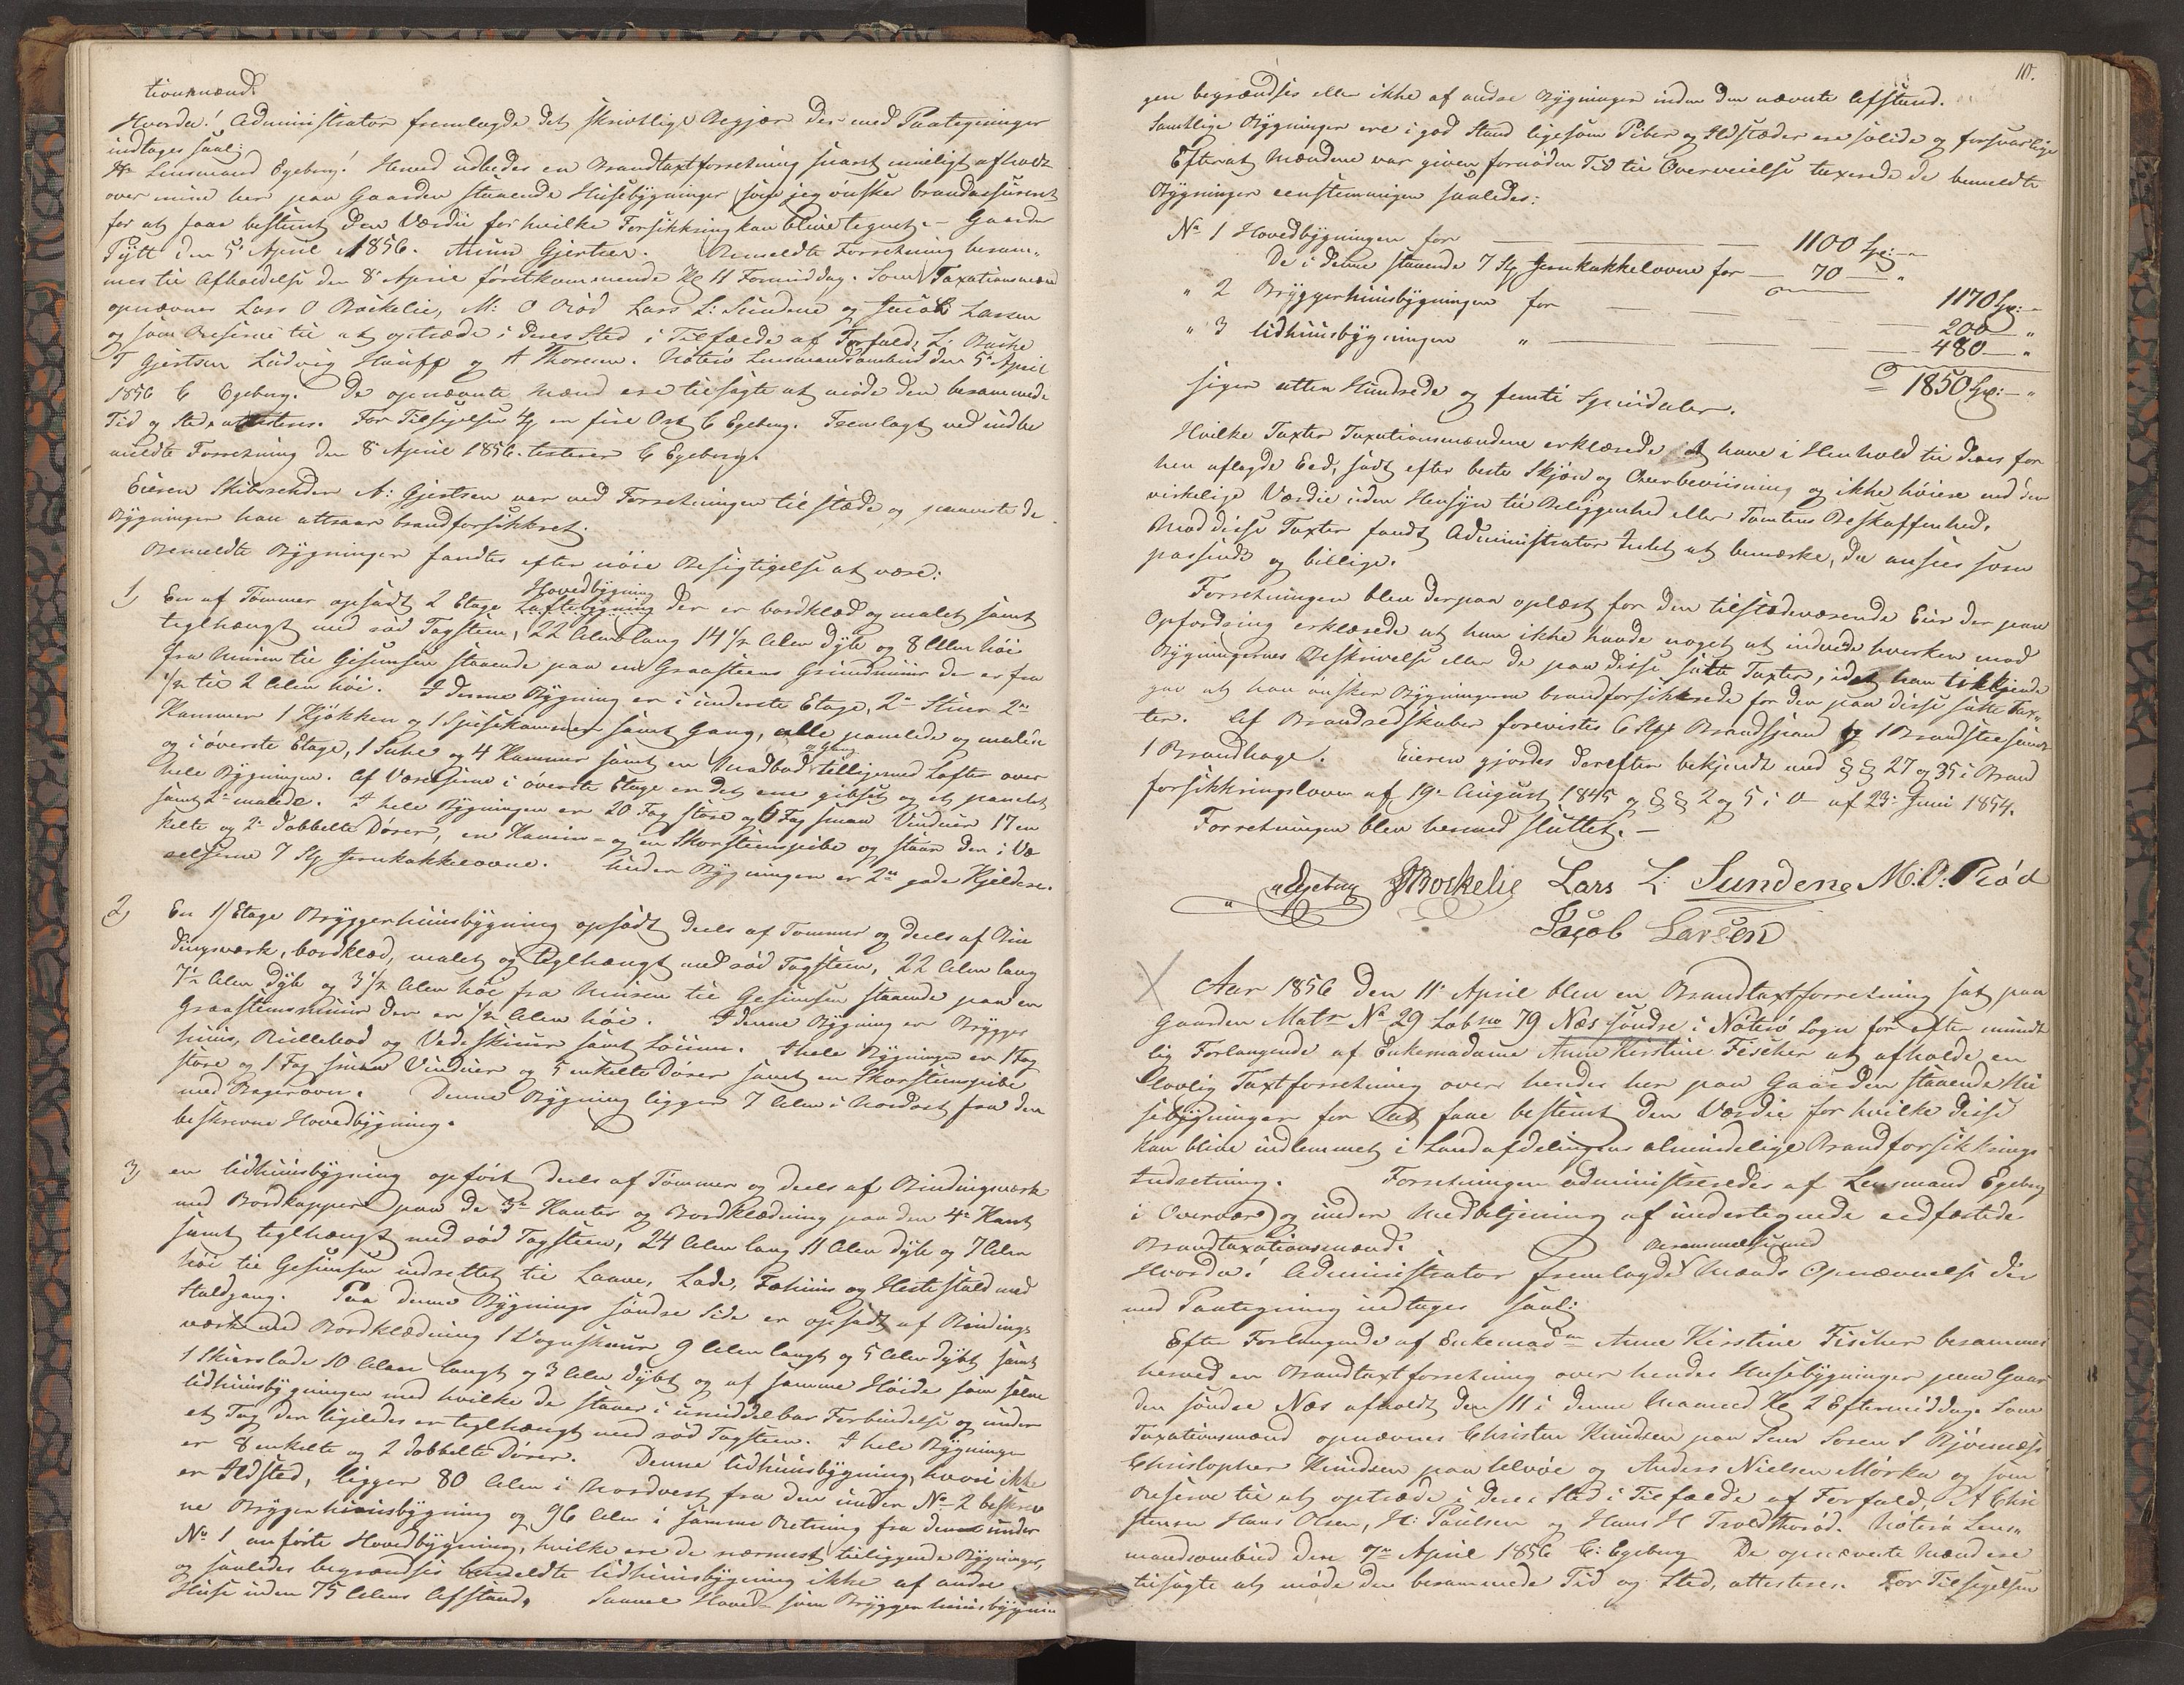 tionsmænd.
Hvorda! Administrator fremlagde det skrivtlige Begjær der med Paategninger
indtages saal:
Hr Lensmand Egeberg! Herved udbedes en Brandtaxtforretning snarest mueligt afholdt
over mine her paa Gaarden staaende Huusebygninger som jeg ønsker brandassureret
for at faae bestemt den Værdie for hvilke Forsikkring kan blive tegnet. - Gaarden
Pytt den 5 April 1856. Anund Gjertsen. Anmeldte Forretning beram-
mes til Afholdelse den 8 April førstkommende Kl 11 Formiddag. Som Taxationsmænd
opnævnes Lars O Borkelie, M: O Röd Lars L: Sundene og Jacob Larsen
og som Reserve til at optræde i deres Sted i Tilfælde af Forfald, L: Buske
T Gjertsen Ludvig Hauff og A Thoresen. Nøterö Lensmandsombud den 5 April
1856 C Egeberg. De opnævnte Mænd ere tilsagte at møde den berammede
Tid og Sted, attesteres. For Tilsigelsen 4 er fire Ort C Egeberg. Fremlagt ved indbe
meldte Forretning den 8 April 1856. testerer C Egeberg.
Eieren Skibsrehder A: Gjertsen var ved Forretningen tilstæde og paaviste de
Bygninger han attraar brandforsikkret.
Bemeldte Bygninger fandtes efter nöie Besigtigelse at være:
1) En af Tømmer opsadt 2 Etage Hovedbygning der er bordklæd og malet samt
teglhængt med röd Tagsteen, 22 Alen lang 14 1/2 Alen dyb og 8 Alen höi
fra Muren til Gesimsen staaende paa en Graasteens Grundmuur der er fra
1/2 til 2 Alen höi. I denne Bygning er i underste Etage, 2de Stuer 2de
Kammer 1 Kjøkken og 1 Spisekammer samt Gang, alle panelede og malede
og i øverste Etage, 1 Sahl og 4 Kammer samt en Madbod og Gang tilligemed Lofter over
hele Bygningen. Af Værelserne i øverste Etage er det ene gibset og et panelet
samt 2de malede. I hele Bygningen er 20 Fag store og 6 Fag smaa Vinduer 17 en
kelte og 2de dobbelte Dører, en Kamin- og en Skorsteenspibe og staar der i Væ
relserne 7 Stk Jernkakkelovne. Under Bygningen er 2de gode Kjeldere.
2) En 1 Etage Bryggerhuusbygning opsadt deels af Tømmer og deels af Bin
dingsværk, bordklæd, malet og teglhængt med röd Tagsteen, 22 Alen lang
7 1/2 Alen dyb og 3 1/2 Alen höi fra Muren til Gesimsen staaende paa en
Graasteensmuur der er 1/2 Alen höi. I denne Bygning er Brygger
huus, Rullebod og Vedeskuur samt Locum. I hele Bygningen er 1 Fag
store og 1 Fag smaa Vinduer og 5 enkelte Dører samt en Skorsteenspibe
med Bagerovn. Denne Bygning ligger 7 Alen i Nordost fra den
beskrevne Hovedbygning.
3) en Udhuusbygning opfört deels af Tømmer og deels af Bindingsværk
med Bordkapper paa de 3de Kanter og Bordklædning paa den 4de Kant
samt teglhængt med röd Tagsteen, 24 Alen lang 11 Alen dyb og 7 Alen
höi til Gesimsen indrettet til Laave, Lade, Fæhuus og Hestestald med
Staldgang. Paa denne Bygnings søndre Side er opsadt af Bindings
værk med Bordklædning 1 Vognskuur 9 Alen langt og 5 Alen dybt samt
1 Skurslade 10 Alen langt og 3 Alen dybt og af samme Höide som selve
Udhuusbygningen med hvilke de staaer i umiddelbar Forbindelse og under
et Tag der ligeledes er teglhængt med röd Tagsteen. I hele Bygningen
er 8 enkelte og 2 dobbelte Dører. Denne Udhuusbygning, hvori ikke
er Ildsted, ligger 80 Alen i Nordvest fra den under No 2 beskrev
ne Bryggerhuusbygning og 96 Alen i samme Retning fra den under
No 1 anførte Hovedbygning, hvilke ere de nærmest tilliggende Bygninger,
og saaledes begrændses bemeldte Udhuusbygning ikke af andre
Huse inden 75 Alens Afstand. Saavel Hoved- som Bryggerhuusbygnin
10.
gen begrændses eller ikke af andre Bygninger inden den nævnte Afstand.
Samtlige Bygninger ere i god Stand ligesom Piber og Ildstæder ere solide og forsvarlige
Efterat Mændene var given fornöden Tid til Overveielse taxerede de bemeldte
Bygninger eenstemmigen saaledes:
No 1 Hovedbygningen for 1100 Sp: - "
De i denne staaende 7 Stk Jernkakkelovne for — 70 — "
1170 Sp: - "
" 2 Bryggerhuusbygningen for 200 — "
" 3 Udhuusbygningen " 480 — "
1850 Sp: - "
siger atten Hundrede og femti Speciedaler.
Hvilke Taxter Taxationsmændene erklærede at have i Henhold til deres for
hen aflagde Eed, sadt efter beste Skjön og Overbeviisning og ikke höiere end den
virkelige Værdie uden Hensyn til Beliggenhed eller Tomtens Beskaffenhed.
Mod disse Taxter fandt Administrator Intet at bemærke, da ansees som
passende og billige.
Forretningen blev derpaa oplæst for den tilstædeværende Eier der paa
Opfordring erklærede at han ikke havde noget at indvende hverken mod
Bygningernes Beskrivelse eller de paa disse satte Taxter, idet han tilkjende
gav at han ønsker Bygningerne brandforsikkrede for den paa disse satte Tax-
ter. Af Brandredskaber forevistes 6 Stk Brandspand og 1 Brandstie samt
1 Brandhage. Eieren gjordes derefter bekjendt med §§ 27 og 35 i Brand
forsikkringsloven af 19de August 1845 og §§ 2 og 5 i D- af 23de Juni 1854.
Forretningen blev hermed sluttet. -
C Egeberg Borkelie Lars L: Sundene M: O: Röd
Jacob Larsen
X Aar 1856 den 11te April blev en Brandtaxtforretning sat paa
Gaarden Matr No 29 Løbno 79 Næs søndre i Nøterö Sogn for efter mundt
lig Forlangende af Enkemadame Anne Kirstine Fischer at afholde en
lovlig Taxtforretning over hendes her paa Gaarden staaende Hu
sebygninger for at faae bestemt den Værdie for hvilke disse
kan blive indlemmet i Landafdelingens almindelige Brandforsikkrings
Indretning. Forretningen administreredes af Lensmand Egeberg
i Overvær og under Medbetjening af undertegnede eedfæstede
Brandtaxationsmænd.
Hvorda! Administrator fremlagde Berammelse med Mænds Opnævnelse der
med Paategning indtages saal:
Efter Forlangende af Enkemadm Anne Kirstine Fischer berammes
herved en Brandtaxtforretning over hendes Husebygninger paa Gaar
den søndre Næs afholdt den 11 i denne Maaned Kl 2 Eftermiddag. Som
Taxationsmænd opnævnes Christen Knudsen paa Sem Soren S Bjørnnæs
Christopher Knudsen paa Ulvøe og Anders Nielsen Mørka og som
Reserve til at optræde i deres Sted i Tilfælde af Forfald, A Chri
stensen Hans Olsen, H: Paulsen og Hans H Troldthröd. Nøterö Lens-
mandsombud den 7de April 1856 C: Egeberg De opnævnte Mænd ere
tilsagte at møde den berammede Tid og Sted, attesteres. For Tilsigelsen